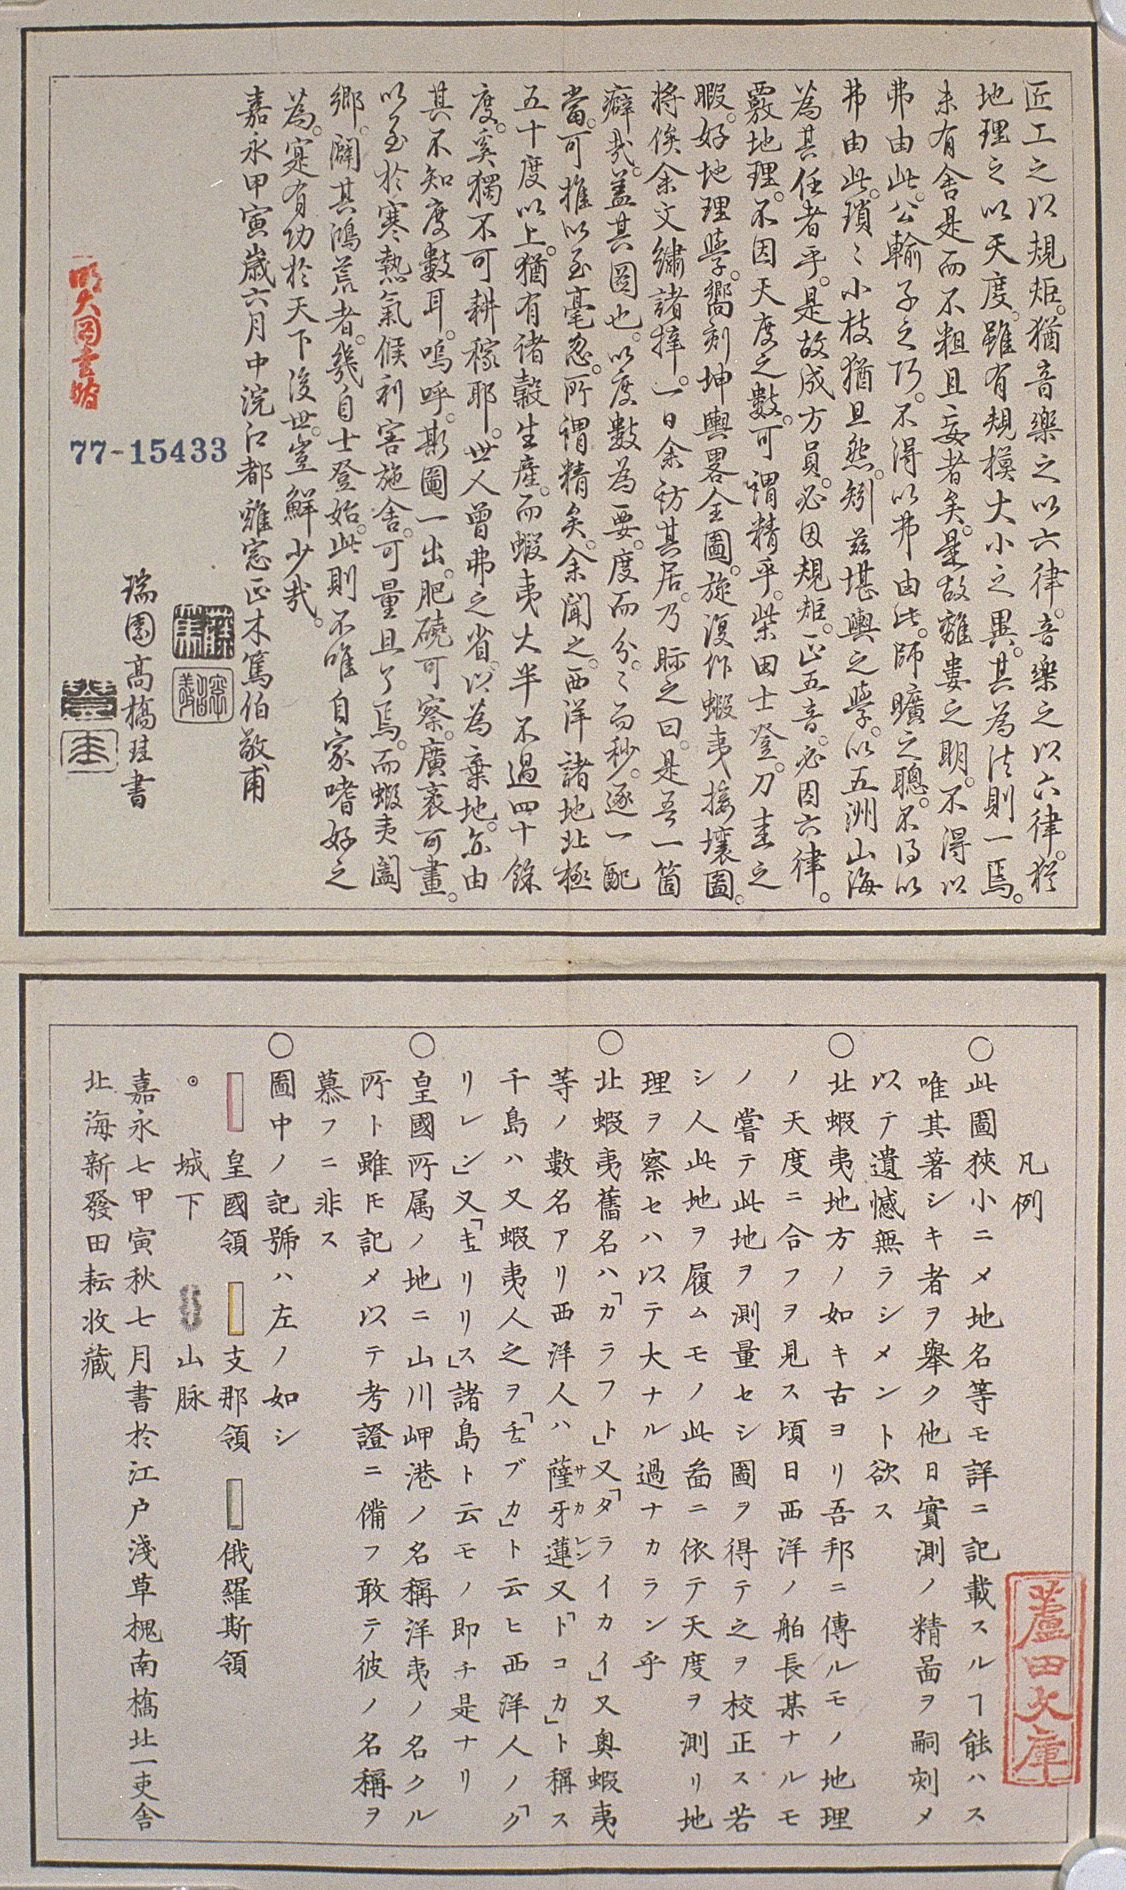 匠工之以規矩。猶音樂之以六律。音樂之以六律。猶
地理之以天度。雖有規模大小之異。其為法則一焉。
未有舍是而不粗且妄者矣。是故離婁之明。不得以
弗由此。公輸子之巧。不得以弗由此。師曠之聰。不得以
弗由此。瑣〻小枝猶且然。矧茲堪輿之學。以五洲山海
為其任者乎。是故成方員。必因規矩。正五音。必因六律。
覈地理。不因天度之數。可謂精乎。柴田士登。刀圭之
暇。好地理學。嚮刻坤輿畧全圖。旋復作蝦夷接壤圖。
將俟余文繡諸梓。一日余訪其居。乃眎之曰。是吾一箇
癖哉。蓋其圖也。以度數為要。度而分。〻而秒。逐一配
當。可推以至毫忽。所謂精矣。余聞之。西洋諸地北極
五十度以上。猶有諸穀生產。而蝦夷大半不過四十餘
度。奚獨不可耕稼耶。世人曾弗之省。以為棄地。亦由
其不知度數耳。嗚呼。斯圖一出。肥磽可察。廣袤可畫。
以至於寒熱氣候利害施舍。可量且了焉。而蝦夷闔
鄉。闢其鴻荒者。幾自士登始。此則不唯自家嗜好之
為。寔有功於天下後世。豈鮮少哉。
嘉永甲寅歲六月中浣江都雞窓正木篤伯敬甫
瑞園高橋珪書
77-15433
凡例
○此圖狹小ニメ地名等モ詳ニ記載スルヿ能ハス
唯其著シキ者ヲ舉ク他日實測ノ精啚ヲ嗣刻メ
以テ遺憾無ラシメント欲ス
○北蝦夷地方ノ如キ古ヨリ吾邦ニ傳ルモノ地理
ノ天度ニ合フヲ見ス頃日西洋ノ舶長某ナルモ
ノ嘗テ此地ヲ測量セシ圖ヲ得テ之ヲ校正ス若
シ人此地ヲ履ムモノ此啚ニ依テ天度ヲ測リ地
理ヲ察セハ以テ大ナル過ナカラン乎
○北蝦夷舊名ハ「カラフト」又「タライカイ」又奥蝦夷
等ノ數名アリ西洋人ハ薩牙蓮サカレン又「トコカ」ト稱ス
千島ハ又蝦夷人之ヲ「チュプカ」ト云ヒ西洋人ノ「ク
リレン」又「キュリリス」諸島ト云モノ即チ是ナリ
○皇國所属ノ地ニ山川岬港ノ名稱洋夷ノ名クル
所ト雖𪜈記メ以テ考證ニ備フ敢テ彼ノ名稱ヲ
慕フニ非ス
○圖中ノ記號ハ左ノ如シ
皇國領 支那領 俄羅斯領
城下 山脉
嘉永七甲寅秋七月書於江戸淺草槐南橋北一吏舎
北海新發田耘收藏
蘆田文庫